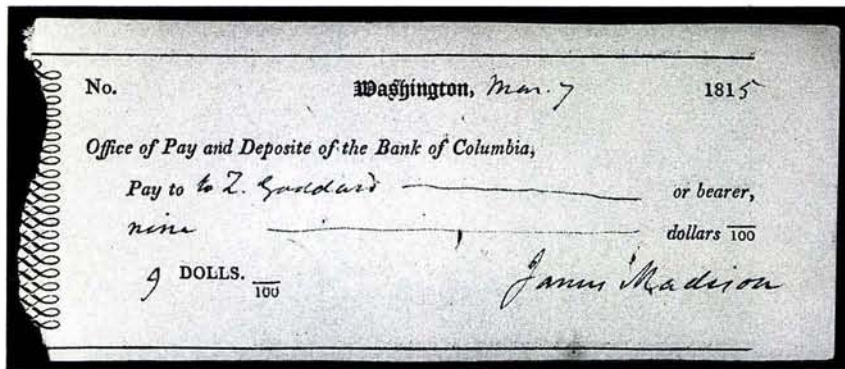 No. Washington, Mar. 7 1815
Office of Pay and Deposite of the Bank of Columbia,
Pay to to Z. Goddard or bearer,
nine dollars /100
9 DOLLS. /100
James Madison